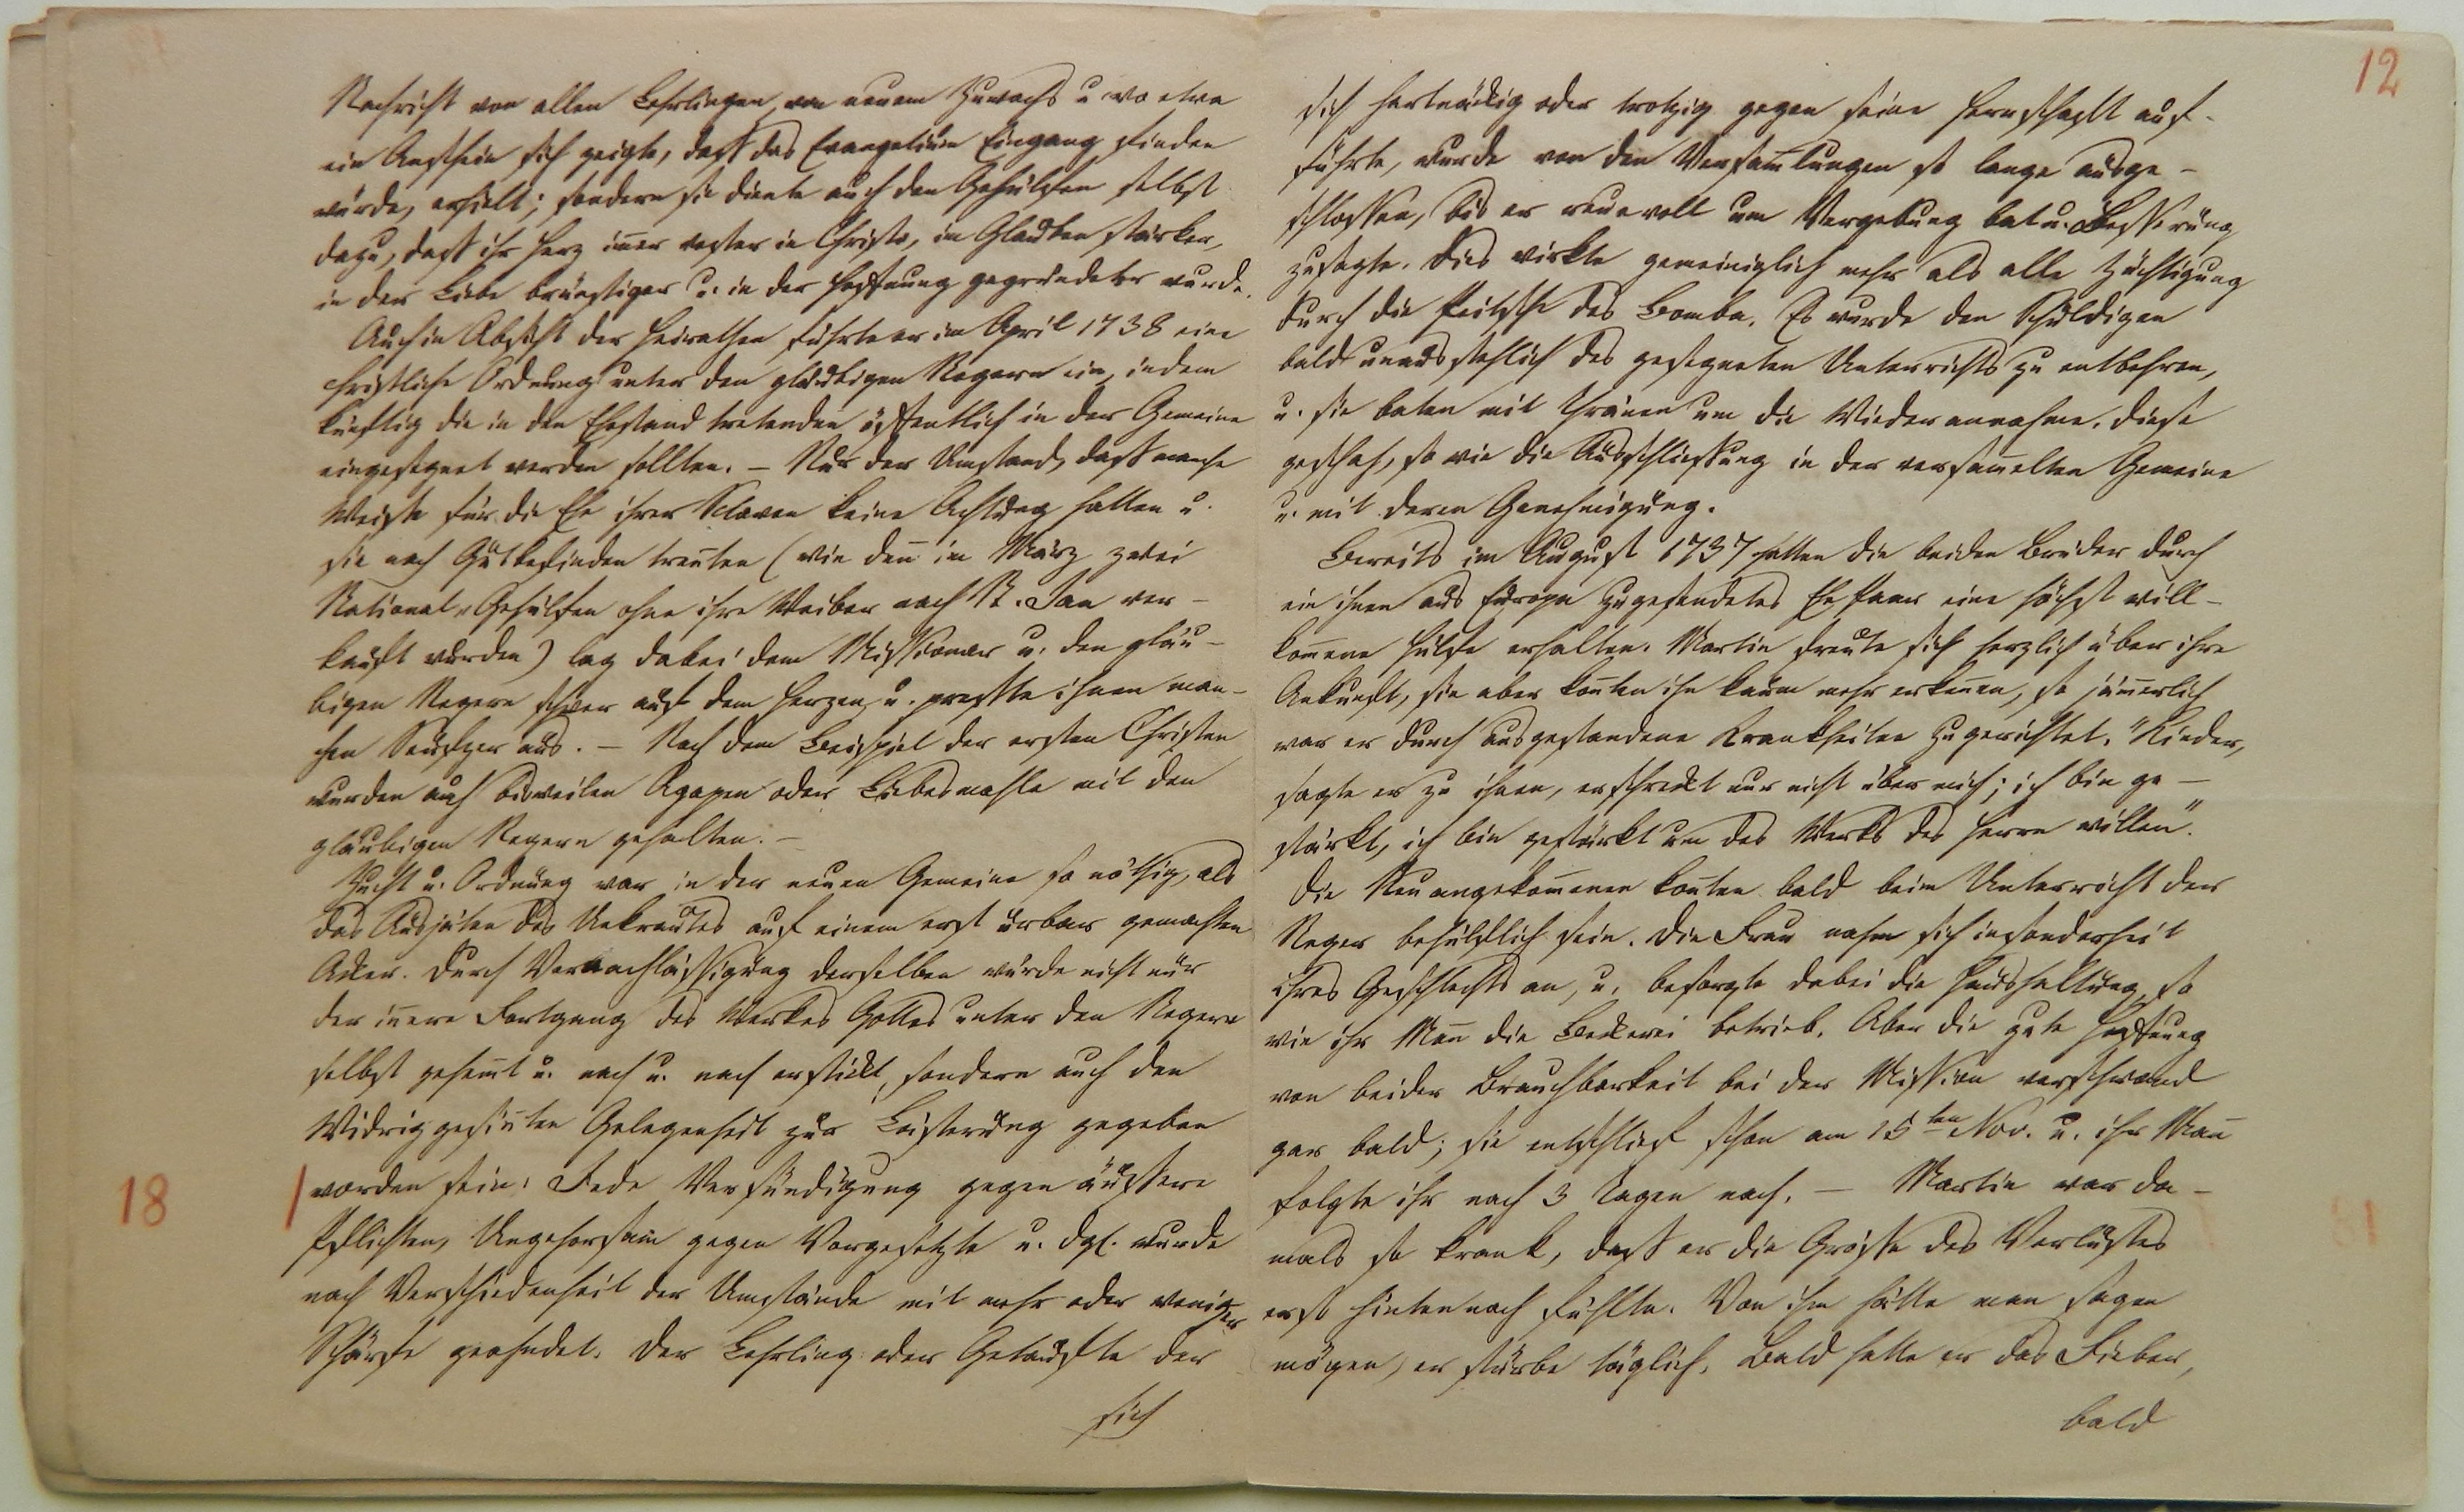 Nachricht von allen Lehrlingen, von neuem Zuwachs u. wo etwa
ein Anschein sich zeigte, dass das Evangelium Eingang finden
würde, erhielt; sondern sie diente auch den Gehülfen selbst
dazu, dass ihr Herz im̄er fester in Christo, im Glauben stärker,
in der Liebe brünstiger u. in der Hoffnung gegründeter wurde.
Auch in Absicht der Heirathen führte er im April 1738 eine
christliche Ordnung unter den gläubigen Negern ein, indem
künftig die in den Ehestand tretenden öffentlich in der Gemeine
eingesegnet werden sollten. – Nur der Umstand, dass manche
Weisse für die Ehe ihrer Sclaven keine Achtung hatten u.
sie nach Gutbefinden treñten (wie deñ im März zwei
National-Gehülfen ohne ihre Weiber nach St. Jan ver-
kauft wurden) lag dabei dem Missionar u. den gläu-
bigen Negern schwer auf dem Herzen, u. presste ihnen man-
chen Seufzer aus. – Nach dem Beispiel der ersten Christen
wurden auch bisweilen Agapen oder Liebesmahle mit den
gläubigen Negern gehalten. –
Zucht u. Ordnung war in der neuen Gemeine so nöthig, als
das Ausjäten des Unkrautes auf einem erst urbar gemachten
Acker. Durch Vernachlässigung derselben würde nicht nur
der iñere Fortgang des Werkes Gottes unter den Negern
selbst gehem̄t u. nach u. nach erstickt, sondern auch den
Widriggesiñten Gelegenheit zur Lästerung gegeben
18 worden sein. Jede Versündigung gegen äussere
Pflichten, Ungehorsam gegen Vorgesetzte u. dgl. wurde
nach Verschiedenheit der Umstände mit mehr oder weniger
Schärfe geahndet. Der Lehrling oder Getaufte der
sich
12
sich hartnäckig oder trotzig gegen seine Herrschaft auf-
führte, wurde von den Versam̄lungen so lange ausge-
schlossen, bis er reuevoll um Vergebung bat u. Besserung
zusagte. Dies wirkte gemeiniglich mehr als alle Züchtigung
durch die Peitsche des Bomba. Es wurde den Schuldigen
bald unausstehlich des gesegneten Unterrichts zu entbehren,
u. sie baten mit Thränen um die Wiederannahme. Diese
geschah, so wie die Ausschliessung in der versam̄elten Gemeine
u. mit deren Genehmigung.
Bereits im August 1737 hatten die beiden Brüder durch
ein ihnen aus Europa zugesendetes Ehepaar eine höchst will-
kom̄ene Hülfe erhalten. Martin freute sich herzlich über ihre
Ankunft, sie aber koñten ihn kaum mehr erkeñen, so jäm̄erlich
war er durch ausgestandene Krankheiten zugerichtet. "Kinder,
sagte er zu ihnen, erschreckt nur nicht über mich; ich bin ge-
stärkt, ich bin gestärkt um des Werks des Herrn willen".
Die Neuangekom̄enen koñten bald beim Unterricht der
Neger behülflich sein. Die Frau nahm sich insonderheit
ihres Geschlechts an, u. besorgte dabei die Haushaltung, so
wie ihr Mañ die Beckerei betrieb. Aber die gute Hoffnung
von beider Brauchbarkeit bei der Mission verschwand
gar bald; sie entschlief schon am 15ten Nov. u. ihr Mañ
folgte ihr nach 3 Tagen nach. – Martin war da-
mals so krank, dass er die Grösse des Verlustes
erst hintennach fühlte. Von ihm hätte man sagen
mögen, er stürbe täglich. Bald hatte er das Fieber,
bald